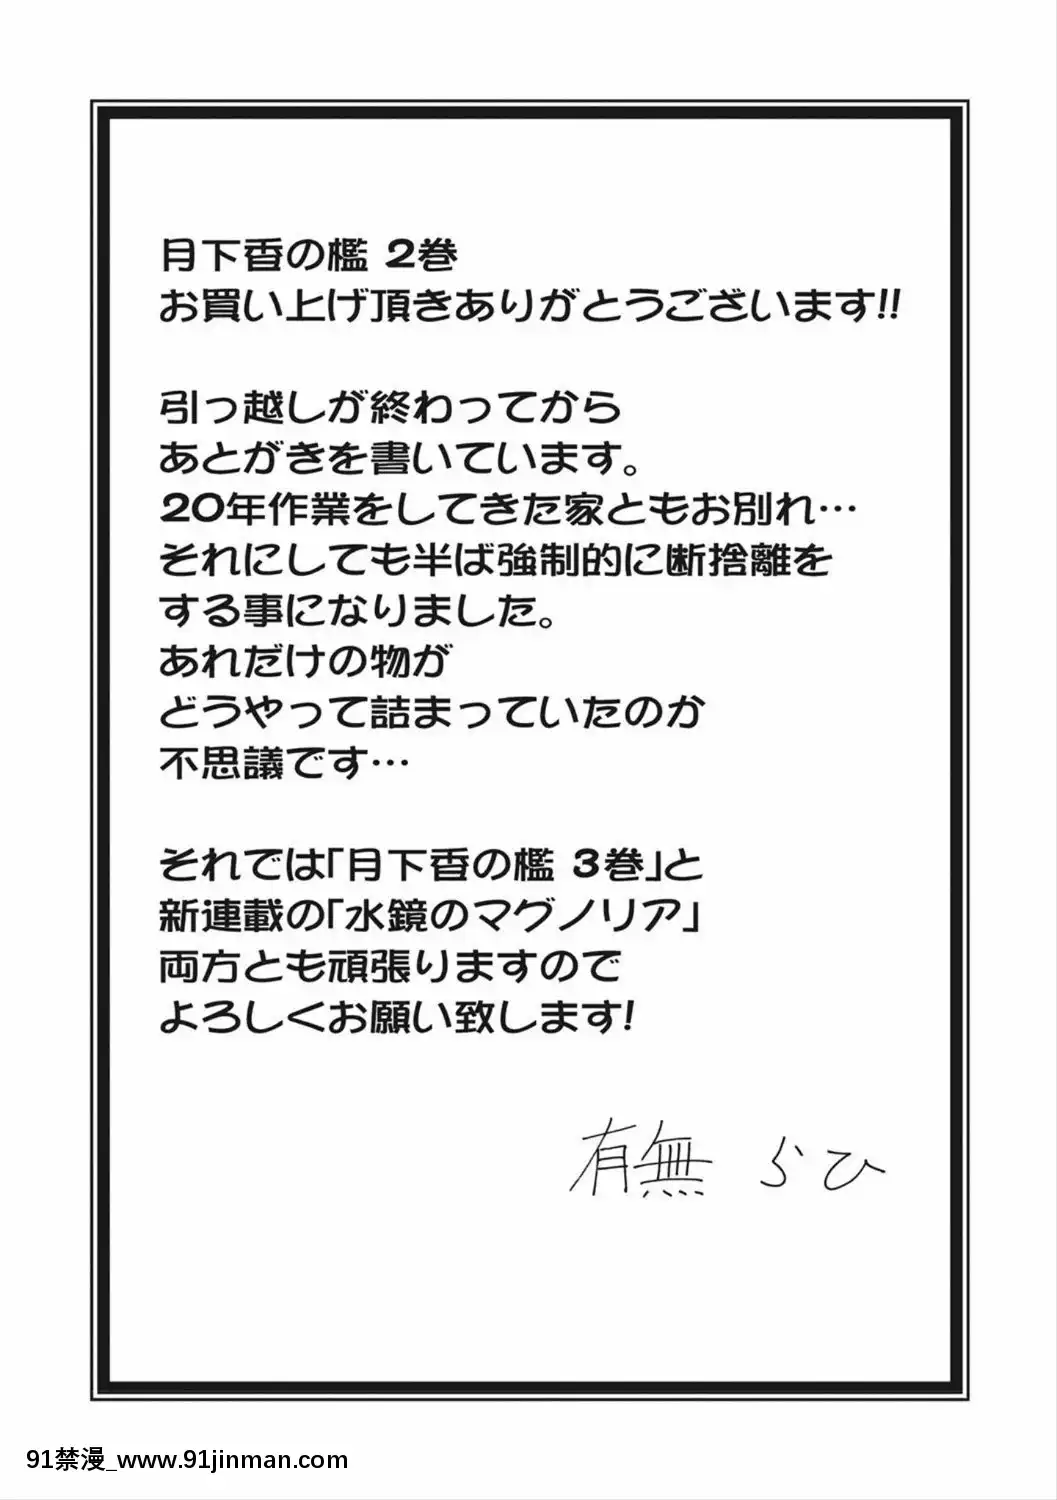 月下香の檻 2巻
お買い上げ頂きありがとうございます!!
引っ越しが終わってから
あとがきを書いています。
20年作業をしてきた家ともお別れ…
それにしても半ば強制的に断捨離を
する事になりました。
あれだけの物が
どうやって詰まっていたのか
不思議です…
それでは「月下香の檻 3巻」と
新連載の「水鏡のマグノリア」
両方とも頑張りますので
よろしくお願い致します!
有無 らひ
91禁漫_www.91jinman.com